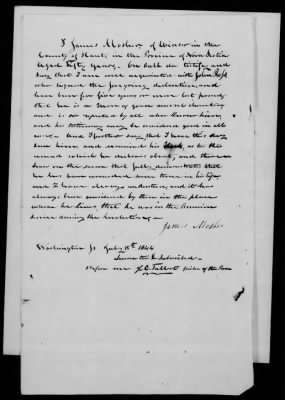 I James Mosher of Winsor in the
County of Hants, in the Province of Nova Scotia
aged fifty years. On oath do testify and
say that I am well acquainted with John
who signed the foregoing declaration, and
have been for five years or more last passed,
that he is a man of good moral character
and is so reputed by all who know him,
and his testimony may be considered good in all
cases. And I further say, that I have this day
seen him, and examined his as to the
wound which he declares about, and there is a
scar on the same that fully demonstrates that
he has been wounded some time in his life,
and I have always understood, and it has
always been considered by them in the place
where he lives that he was in the American
during the Revolution,
James Mosher
Washington Js July 15th 1844
Sworn to & Subscribed
Before me Talbot Justice of the Peace